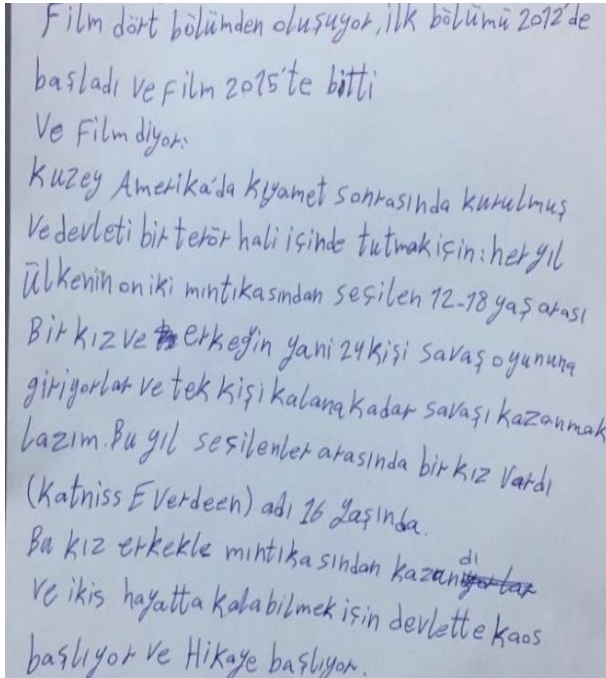 Film dört bölümden oluşuyor, ilk bölümü 2012'de
başladı ve film 2015'te bitti
Ve Film diyor:
Kuzey Amerika'da kıyamet sonrasında kurulmuş
Ve devleti bir terör hali içinde tutmak için: her yıl
Ülkenin on iki mıntıkasından seçilen 12-18 yaş arası
Bir kız ve erkeğin yani 24 kişi savaş oyununa
giriyorlar ve tek kişi kalana kadar savaşı kazanmak
Lazım. Bu yıl seçilenler arasında bir kız vardı
(Katniss Everdeen) adı 16 yaşında.
Bu kız erkekle mıntıkasından kazandı
ve ikis hayatta kalabilmek için devlette kaos
başlıyor ve Hikaye başlıyor.